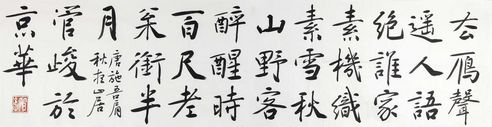 去鴈聲
遥人語
絶誰家
素機織
素雪秋
山野客
醉醒時
百尺老
枀銜半
月
唐施吾肩
秋夜山居
管峻於
京華